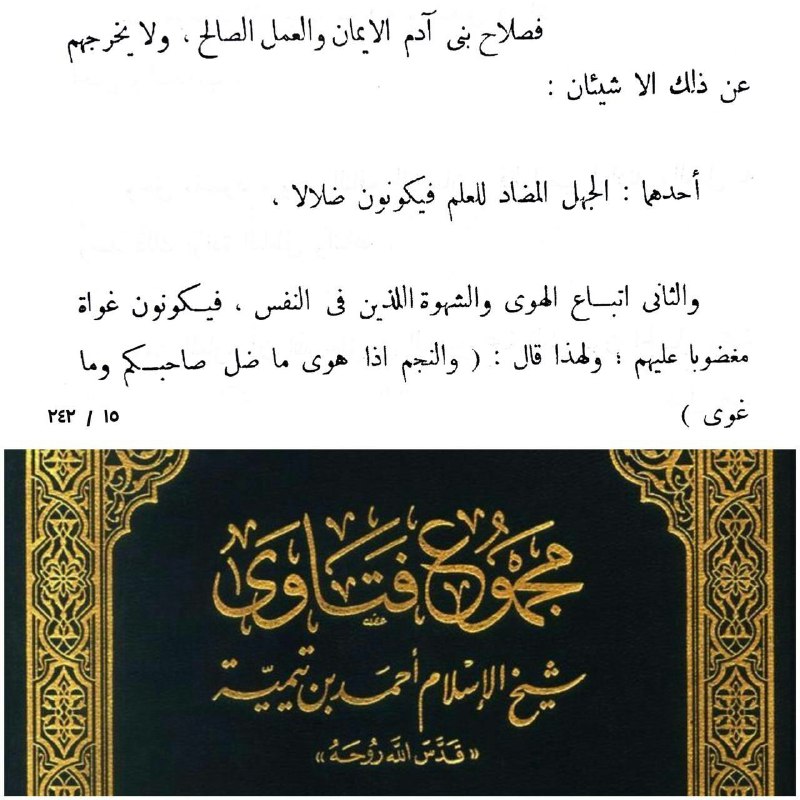 فصلاح بنى آدم الايمان والعمل الصالح ، ولا يخرجهم
عن ذلك الا شيئان :
أحدهما : الجهل المضاد للعلم فيكونون ضلالا ،
والثانى اتبــاع الهوى والشهوة اللذين فى النفس ، فيـكونون غواة
مغضوبا عليهم ؛ ولهذا قال : ( والنجم اذا هوى ما ضل صاحبـكم وما
غوى )
١٥ / ٢٤٢
مجموع فتاوى
شيخ الإسلام أحمد بن تيمية
«قدس الله روحه»